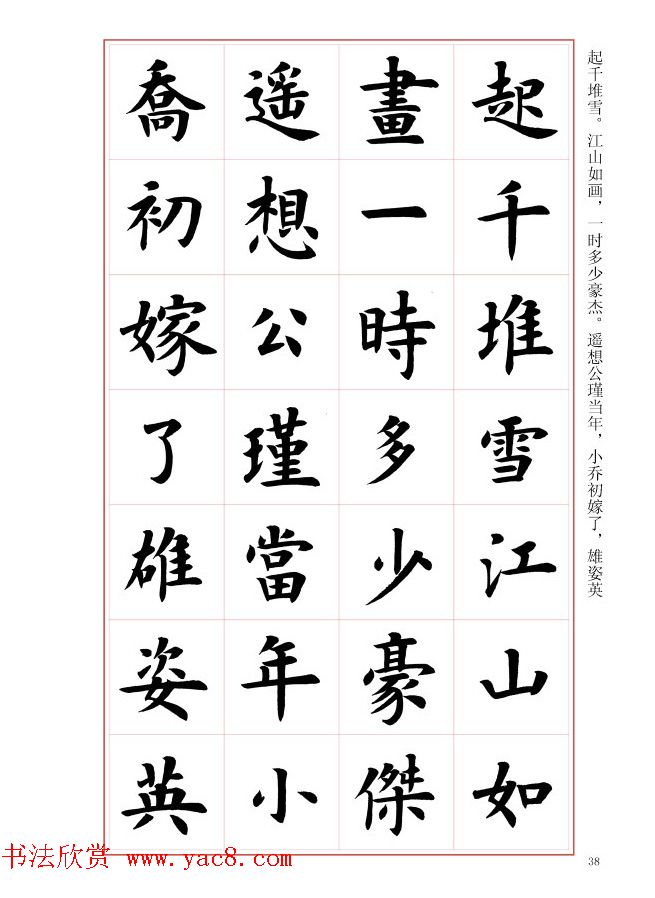 起千堆雪。江山如画，一时多少豪杰。遥想公瑾当年，小乔初嫁了，雄姿英
起千堆雪江山如
畫一時多少豪傑
遥想公瑾當年小
喬初嫁了雄姿英
书法欣赏 www.yac8.com
38